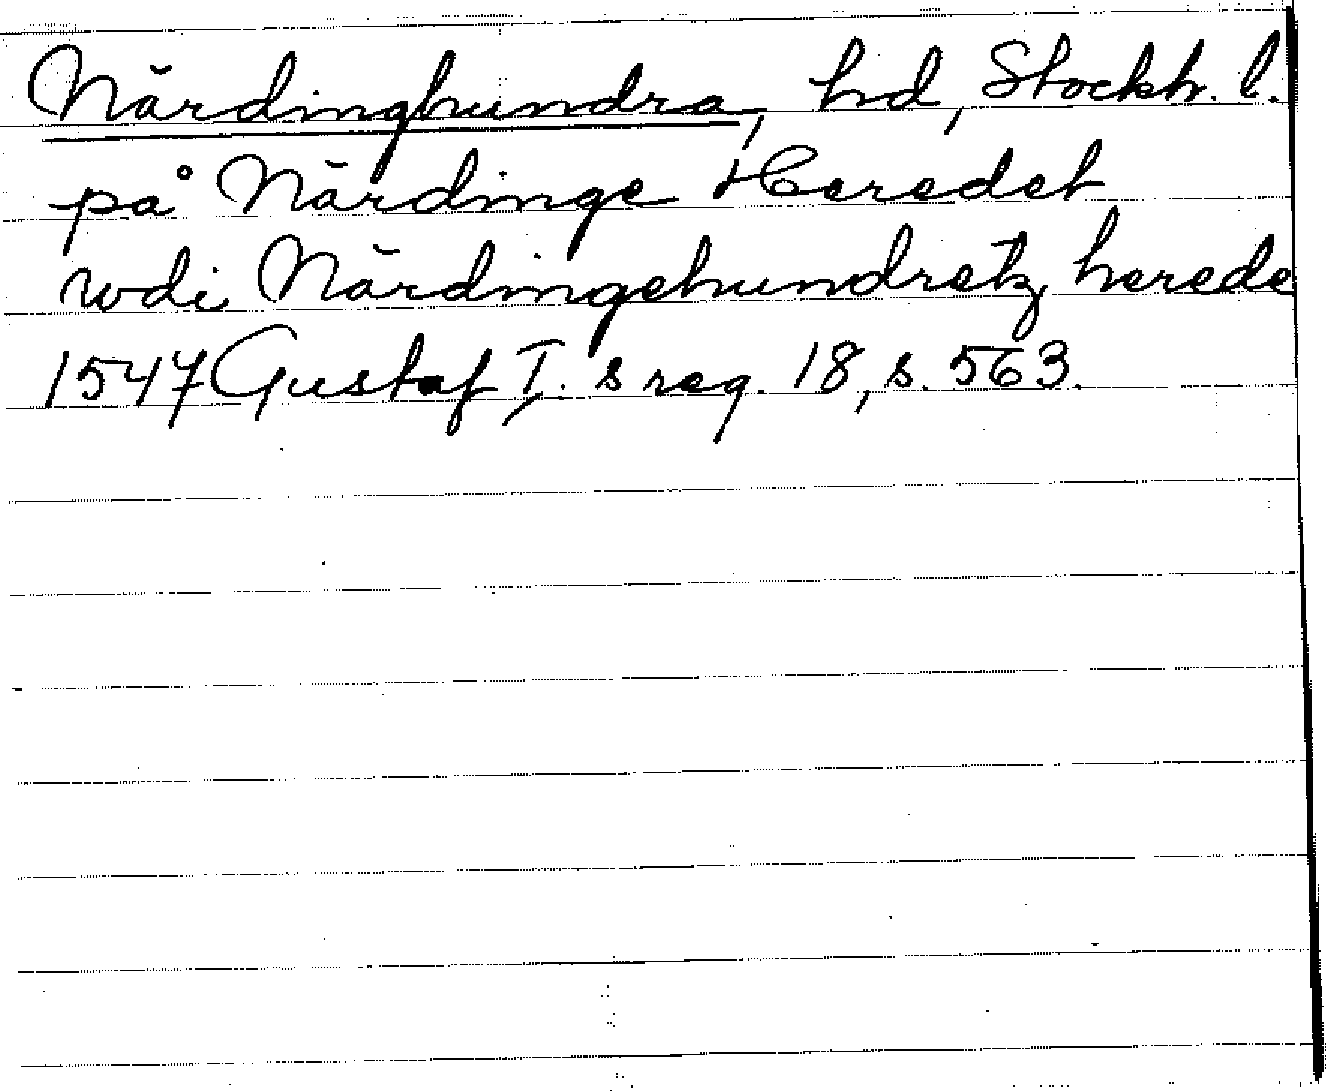 Närdinghundra, hd, Stockh. l.
på Närdinge Heredet
wdi Närdingehundretz herede
1547 Gustaf I. s reg. 18, s. 563.